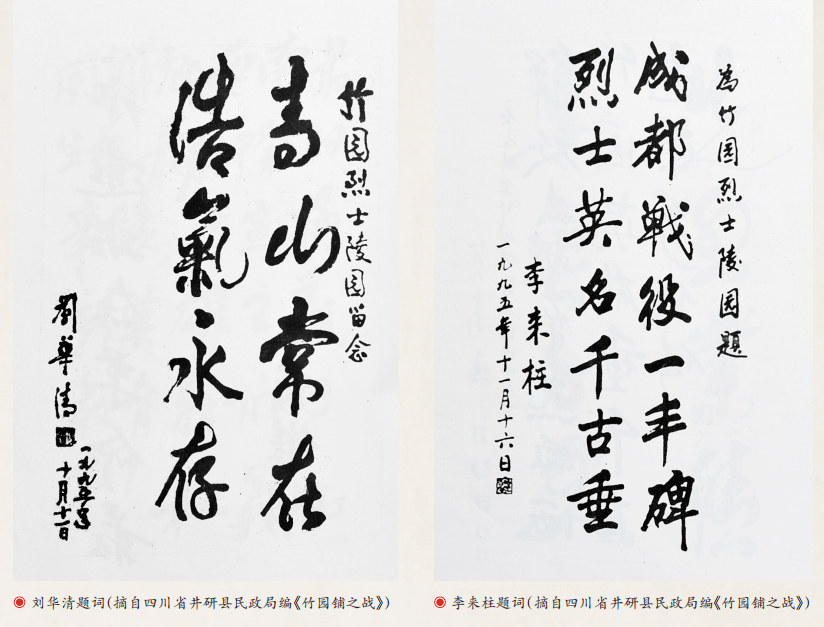 竹园烈士陵园畄念
青山常在
浩氣永存
劉華清
一九九五年
十月
刘华清题词(摘自四川省井研县民政局编《竹园铺之战》)
為竹园烈士陵园題
成都戦役一丰碑
烈士英名千古垂
李来柱
一九九五年十一月十六日
李来柱题词(摘自四川省井研县民政局编《竹园铺之战》)